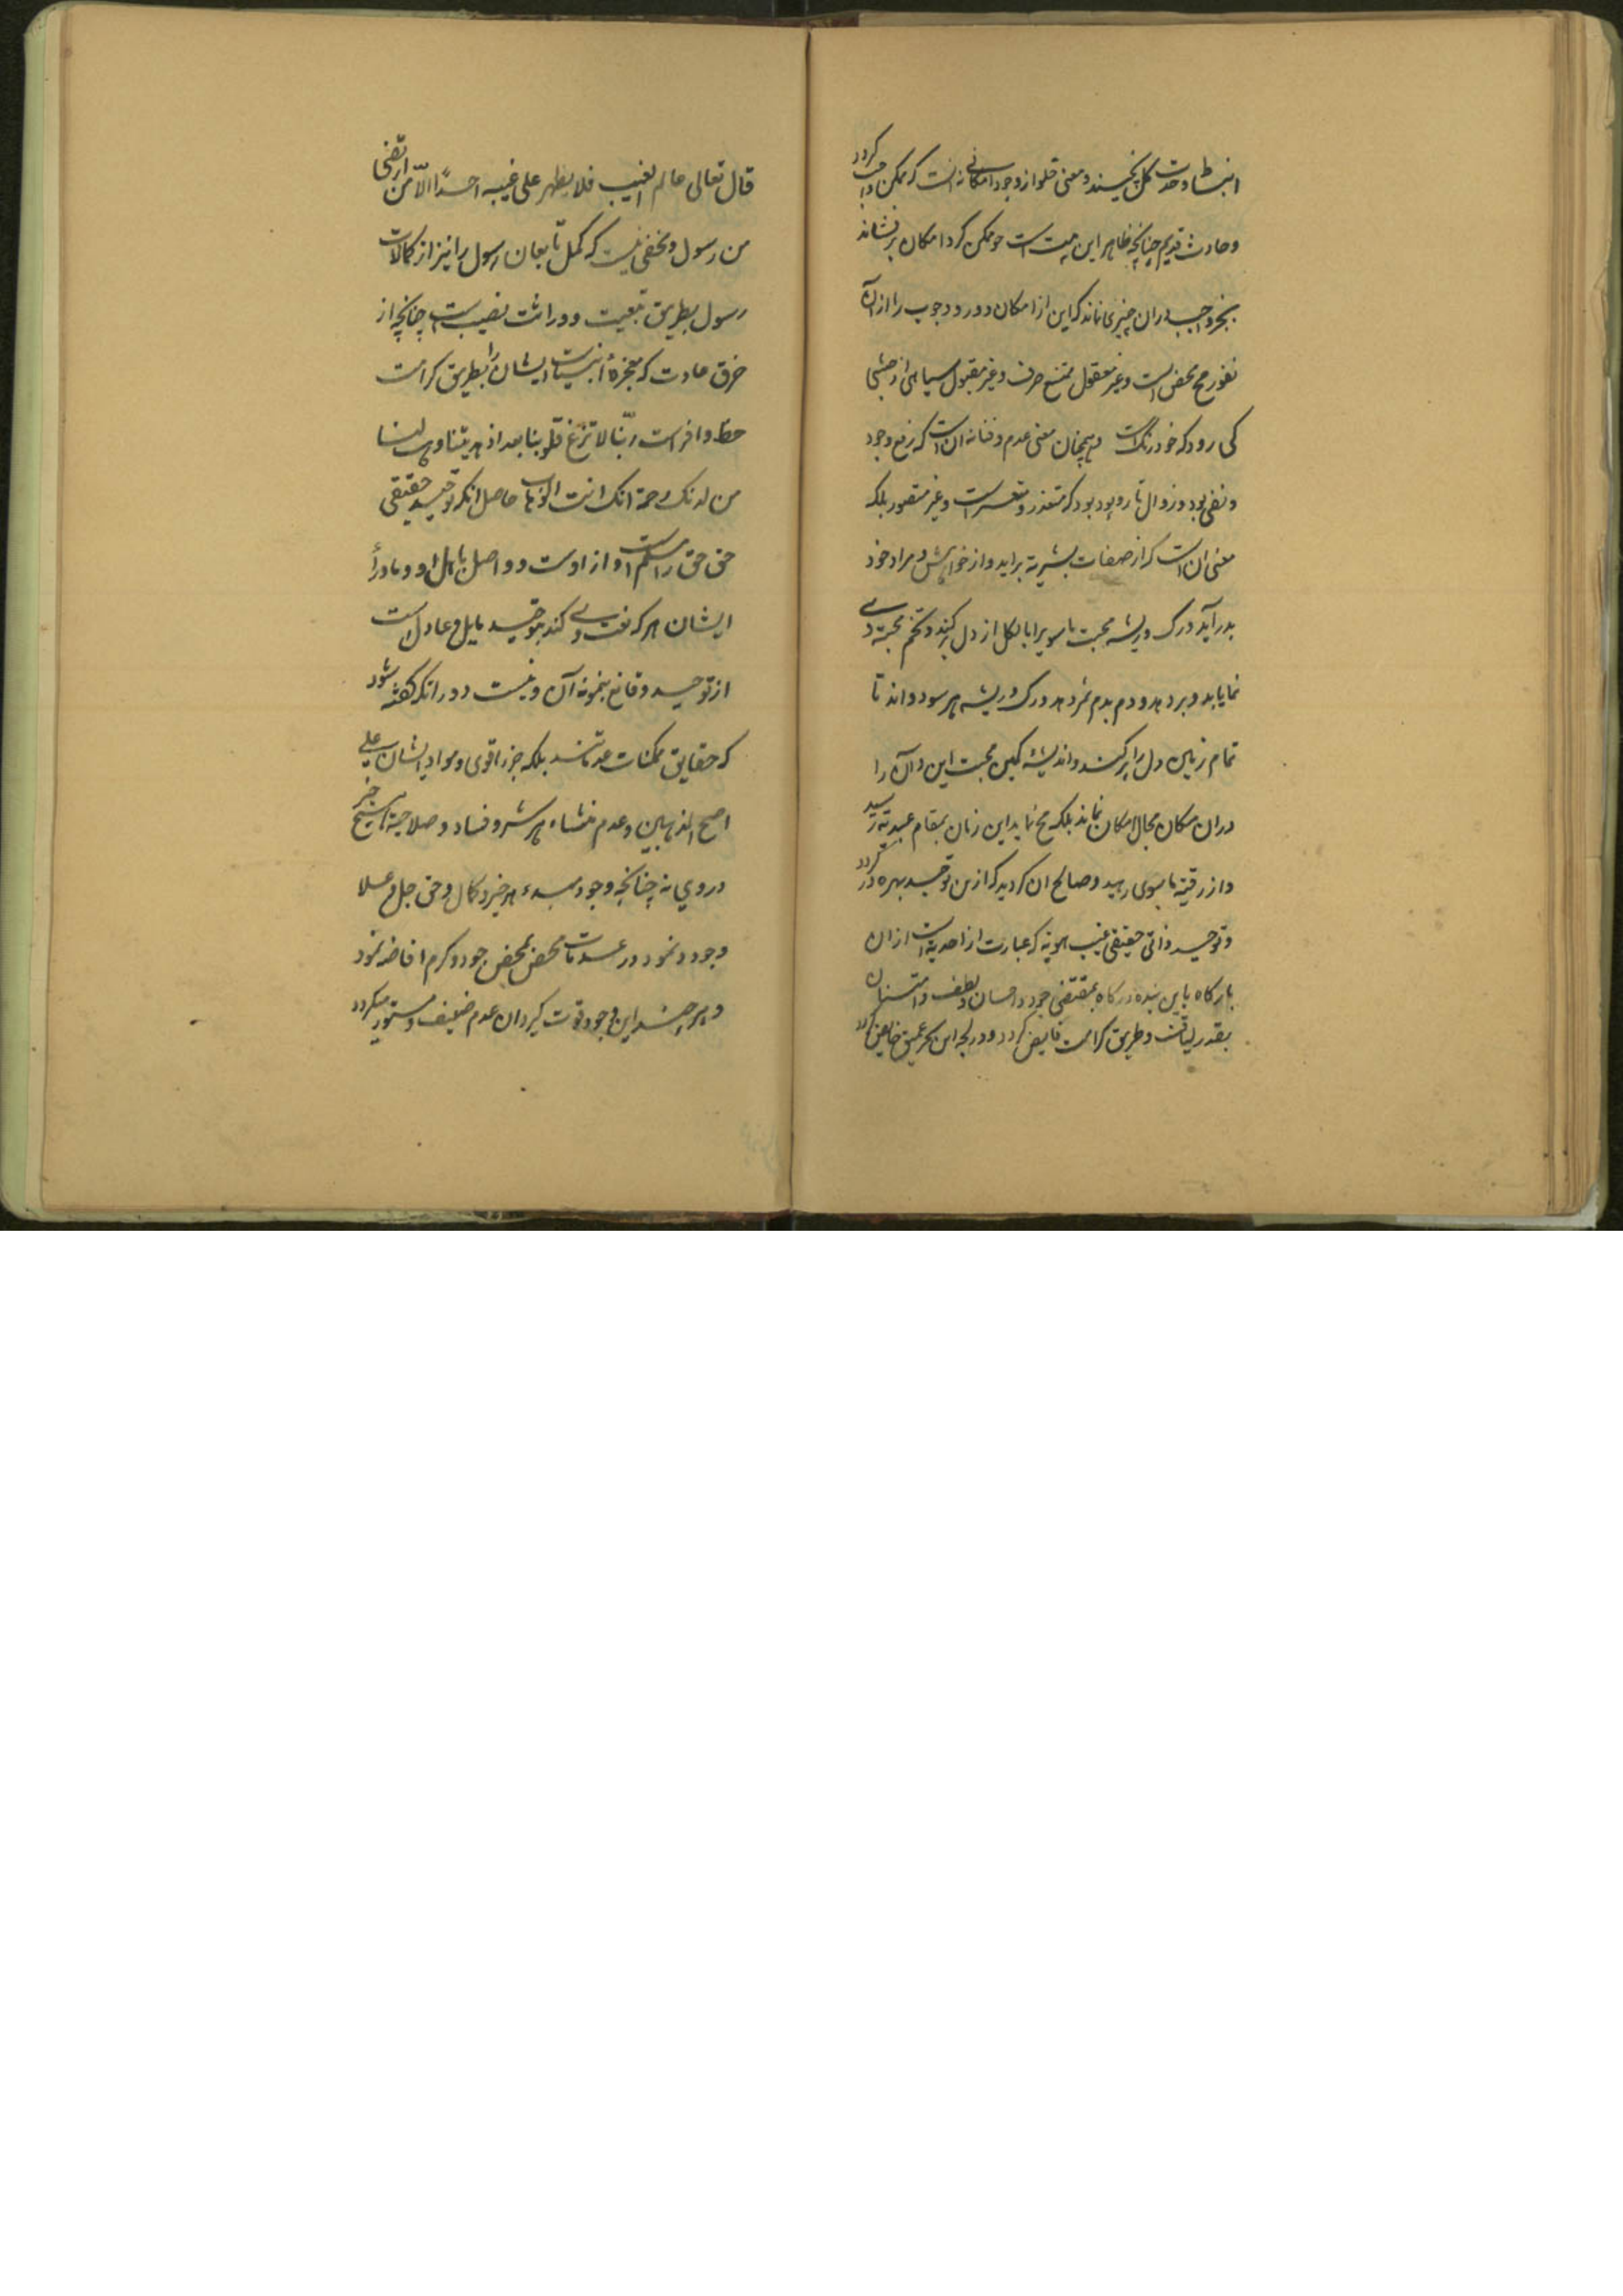 انبساط وحدت کل بخیسند و معنی خلو از وجود امکانی نه انست که ممکن واجب گردد
و حادث قدیم چنانچه ظاهر این بیت است چو ممکن گرد امکان برفشاند
بجز واجب دران چیزی نماند که این از امکان دور و وجوب را از ان
نفور مح محض است و غیر معقول ممتنع صرف و غیر مقبول سیاهی از حبشی
کی رود که خود رنگ است و همچنان معنی عدم و فنا نه ان است که رفع وجود
و نفی بود و زوال تار و پود بود که متعذر و متعسر است و غیر متصور بلکه
معنی ان است که از صفات بشریه براید و از خواهش و مراد خود
بدر آید و رگ و ریشه محبت ماسوی را بالکل از دل برکند و تخم محبته وی
نماید و بردهد و دم بدم ثمر دهد و رگ و ریشه هر سو دواند تا
تمام زمین دل را پر کند و اندیشه کمین محبت این و آن را
دران مکان مجال امکان نماند بلکه مح نماید این زمان بمقام عبدیة رسید
و از رقیة ماسوی رهید و صالح ان گردید که ازین توحید بهره ور گردد
و توحید ذاتی حقیقی غیب الهویة که عبارت از احدیة است از ان
بارگاه باین بنده درگاه بمقتضی جود و احسان و لطف و امتنان
بقدر لیاقت و طریق کرامت فایض گردد و در لجه این بحر عمیق خایض گردد
قال تعالی عالم الغیب فلا یظهر علی غیبه احدًا الّا من ارتضی
من رسول و مخفی نیست که کمل تابعان رسول را نیز از کمالات
رسول بطریق تبعیت و وراثت نصیب است چنانچه از
خرق عادت که معجزهٔ انبیا است ایشان را بطریق کرامت
حظ وافر است ربّنا لا تزغ قلوبنا بعد اذ هدیتنا وهب لنا
من لدنک رحمة انک انت الوهاب حاصل انکه توحید حقیقی
حق حق را مسلم است و از اوست و واصل باهل او و ماوراً
ایشان هر که نعت وی کند بتوحید مایل و عادل است
از توحید و قانع بنمونه آن و نیست دور انکه گفته شود
که حقایق ممکنات عدماتند بلکه جزء اقوی و مواد ایشان علی
اصح المذهبین و عدم منشاء هر شر و فساد و صلاحیة هیچ خیر
در وی نه چنانچه وجود مبدء هر خیر و کمال و حق جل و علا
وجود و نمود در عدمات محض بمحض جود و کرم افاضه نمود
و هر چند این وجود قوت گیرد ان عدم ضعیف و مستور میگردد